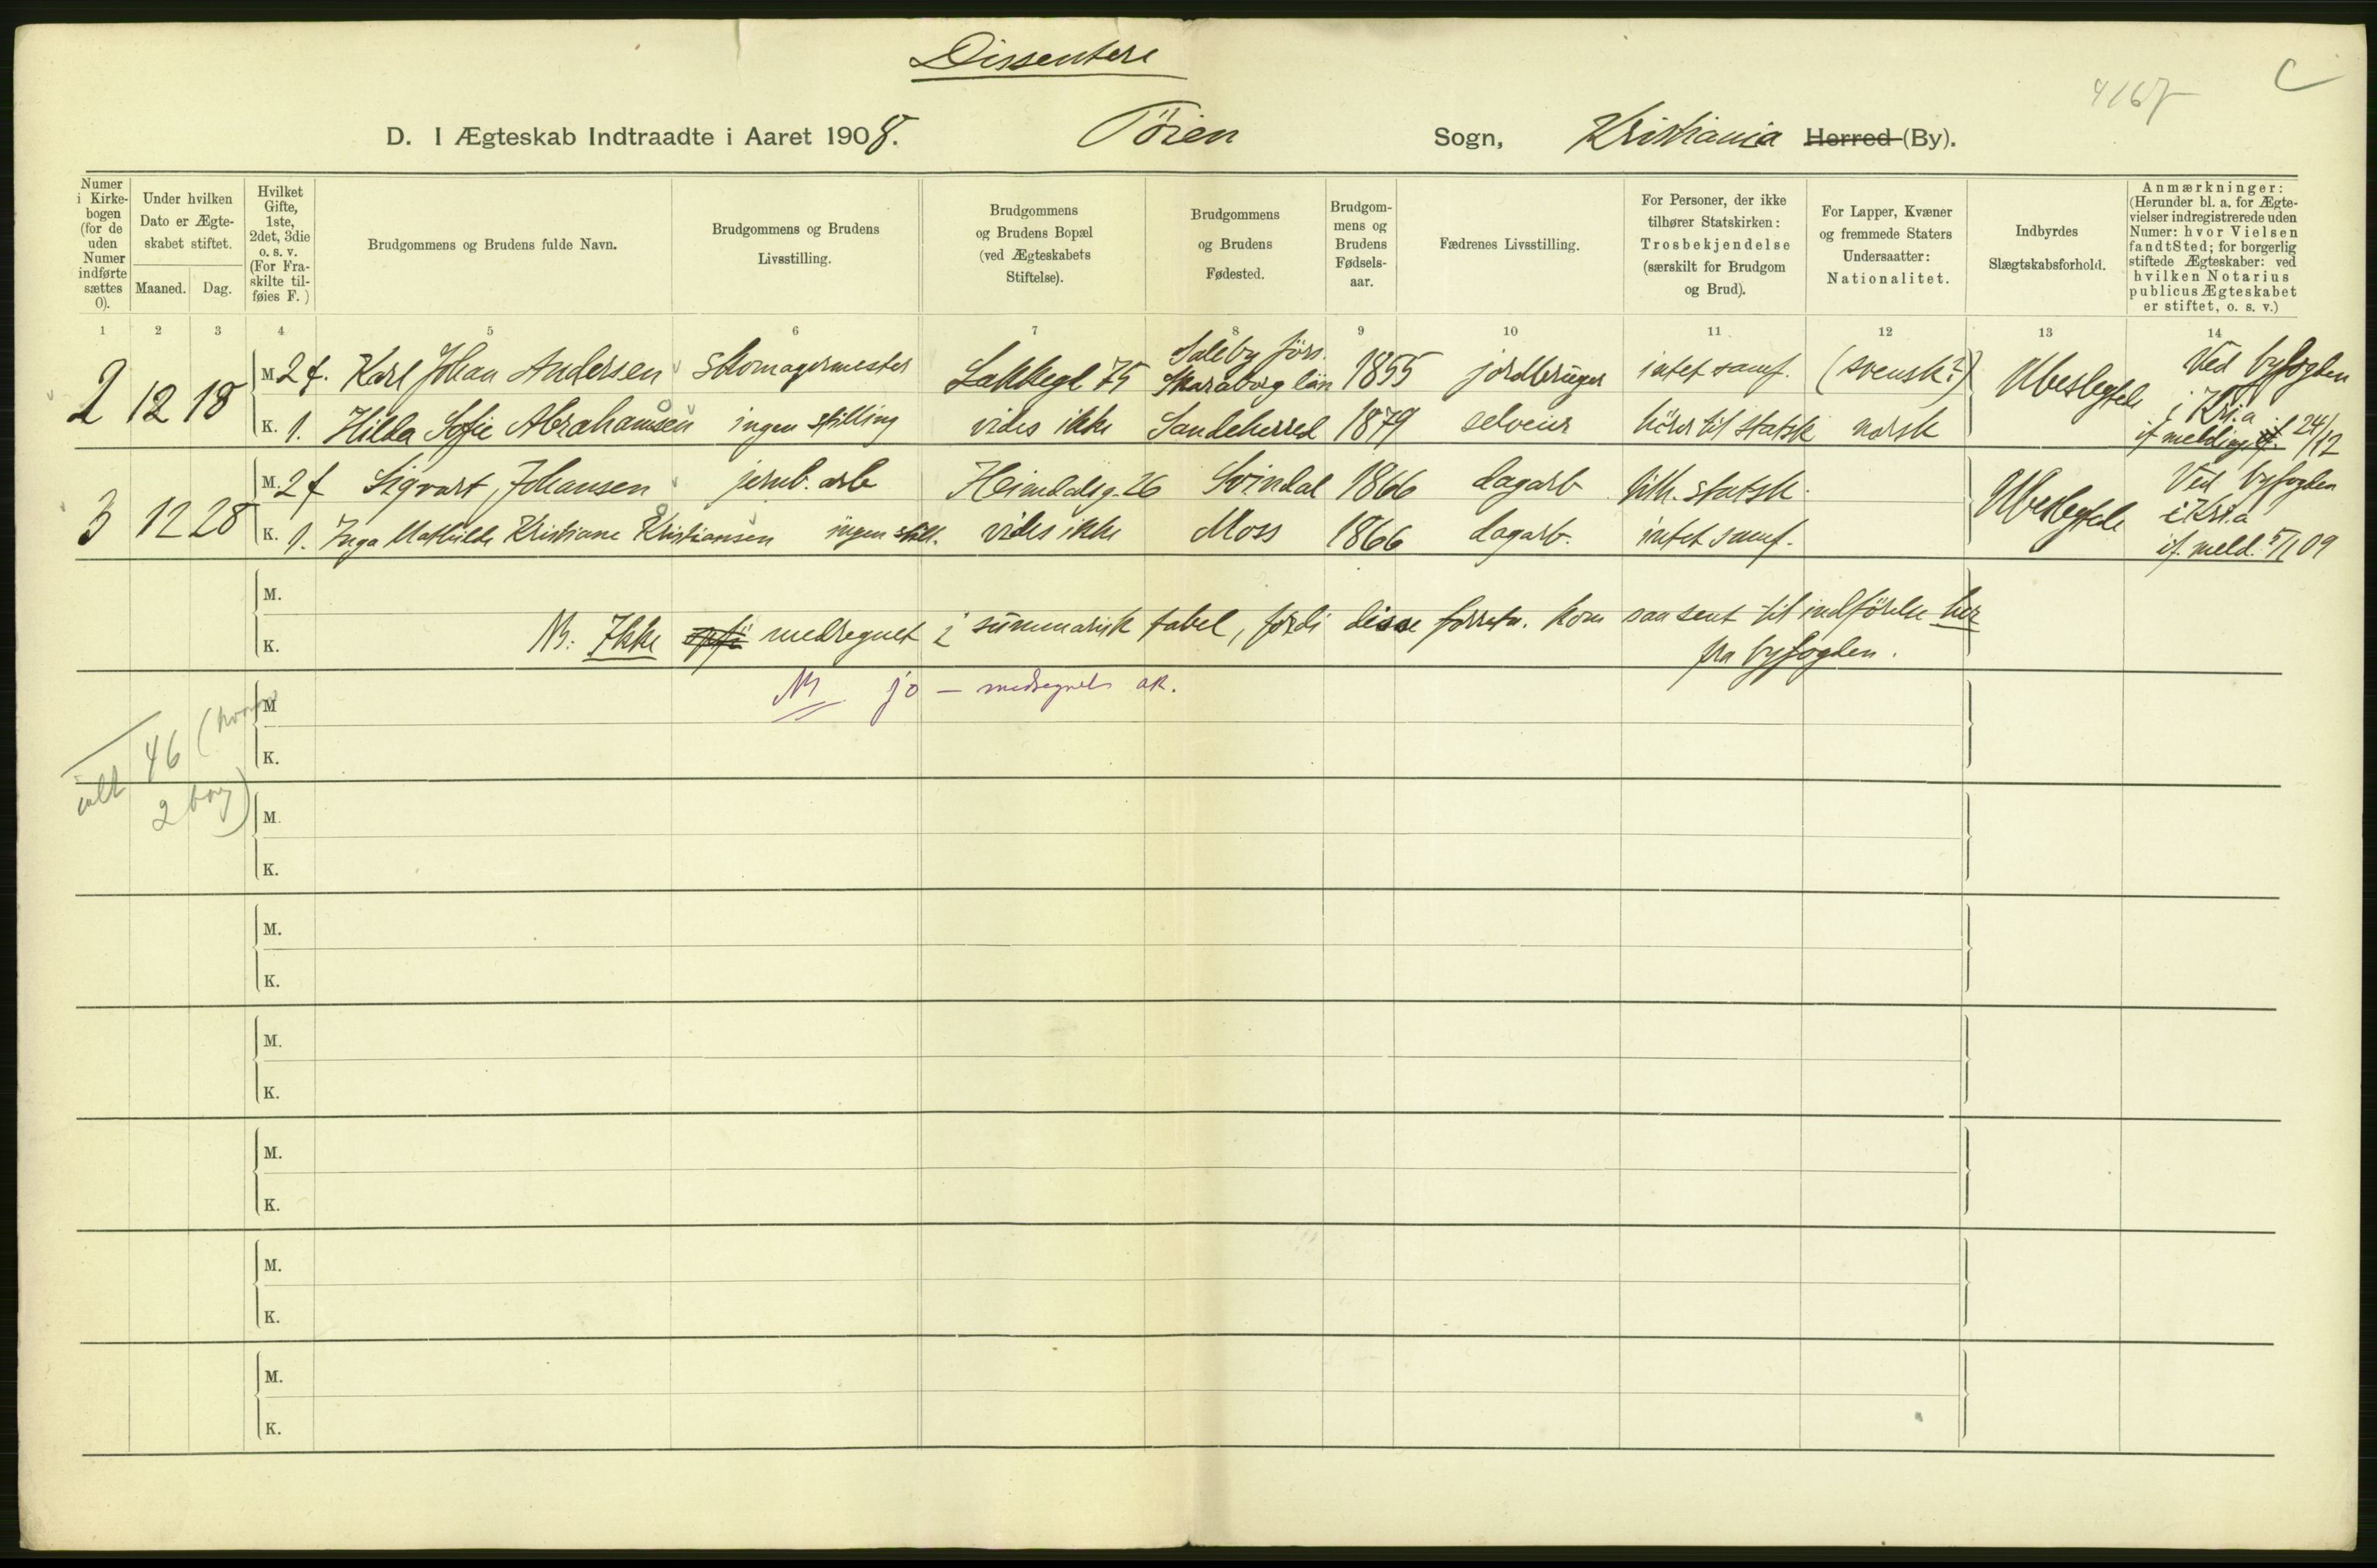 Dissentere
4167
C
D. I Ægteskab Indtraadte i Aaret 1908. Töien Sogn, Kristiania Herred (By).
Numer i Kirkebogen (for de uden Numer indførte sættes 0).
Under hvilken Dato er Ægteskabet stiftet.
Maaned. Dag.
Hvilket Gifte, 1ste, 2det, 3die o. s. v. (For Fraskilte tilføies F.)
Brudgommens og Brudens fulde Navn.
Brudgommens og Brudens Livsstilling.
Brudgommens og Brudens Bopæl (ved Ægteskabets Stiftelse).
Brudgommens og Brudens Fødested.
Brudgommens og Brudens Fødselsaar.
Fædrenes Livsstilling.
For Personer, der ikke tilhører Statskirken: Trosbekjendelse (særskilt for Brudgom og Brud).
For Lapper, Kvæner og fremmede Staters Undersaatter: Nationalitet.
Indbyrdes Slægtskabsforhold.
Anmærkninger: (Herunder bl. a. for Ægtevielser indregistrerede uden Numer: hvor Vielsen fandt Sted; for borgerlig stiftede Ægteskaber: ved hvilken Notarius publicus Ægteskabet er stiftet, o. s. v.)
1 2 3 4 5 6 7 8 9 10 11 12 13 14
2 12 18
M. 2 f. Karl Johan Andersen skomagermester Lakkegt 75 Saleby förs. Skaraborg län 1855 jordbruger intet samf. (svensk?)
K. 1. Hilda Sofie Abrahamsen ingen stilling vides ikke Sandeherred 1879 selveier hörer til statsk norsk
Ubeslegtede
Ved byfogden
i Kr.a
if melding 24/12
3 12 28
M. 2 f Sigvart Johansen jernb. arb Heimdalsg. 26 Svindal 1866 dagarb tilh. statsk.
K. 1. Inga Mathilde Kristiane Kristiansen ingen still. vides ikke Moss 1866 dagarb. intet samf.
Ubeslegtede
Ved byfogden
i Kr.a
if. meld. 5/1 09
M.
K. NB: Ikke medregnet i summarisk tabel, fordi disse forretn. kom saa sent til indförelse her
fra byfogden.
NB jo — medregnet
ialt 46 (hvoraf
2 borg)
M
K.
M.
K.
M.
K.
M.
K.
M.
K.
M.
K.
M.
K.